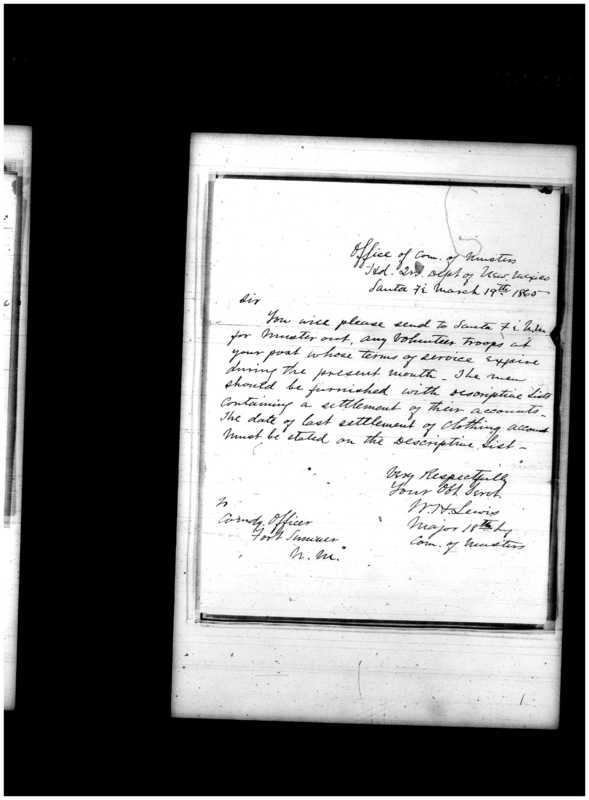 Office of Com. of Musters
Hd. 2rs Dept of New Mexico
Santa Fé March 19th 1865
Sir
You will please send to Santa Fé N.M.
for Muster out, any Volunteer troops at
your post whose terms of service expire
during the present month - The men
should be furnished with Descriptive Lists
Containing a settlement of their accounts -
The date of last settlement of Clothing account
Must be stated on the Descriptive List -
Very Respectfully
Your Obt Servt
W. H. Lewis
Major 18th Inf
Com. of Musters
To
Comdg. Officer
Fort Sumner
N. M.